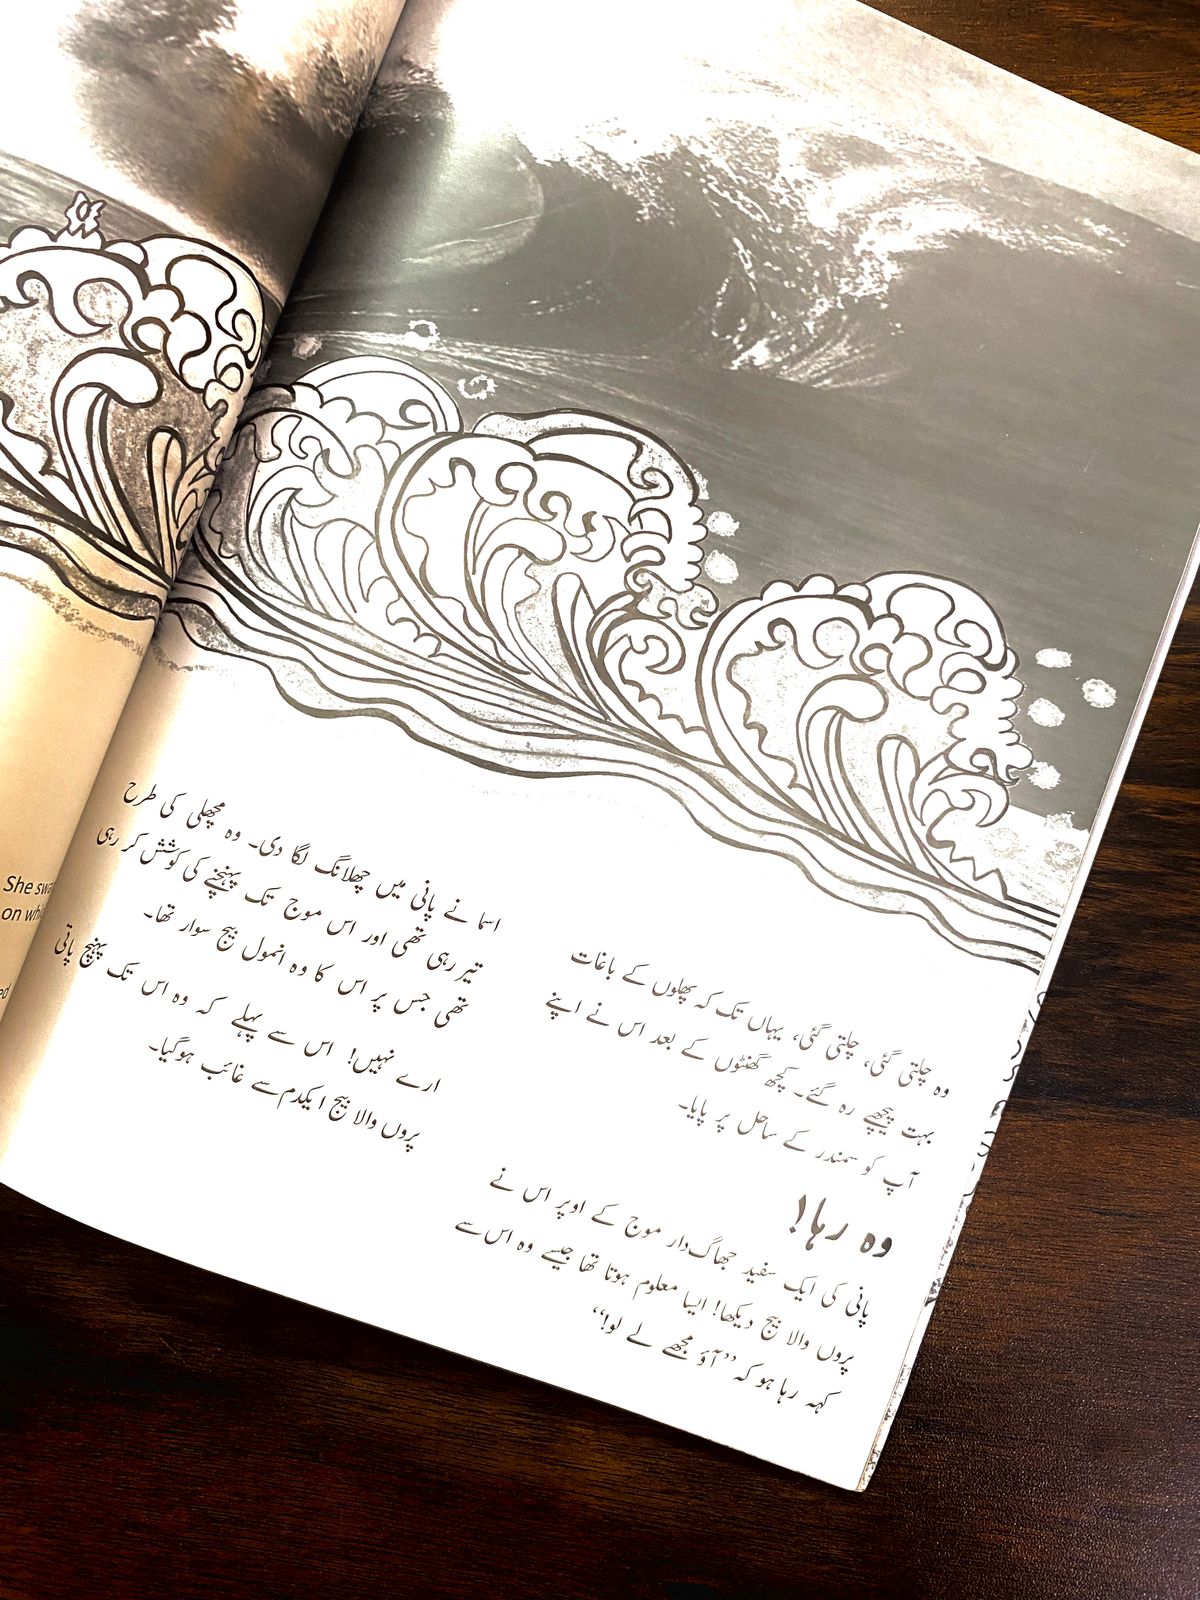 She swa
on whi
ed
وہ چلتی گئی، چلتی گئی، یہاں تک کہ پھلوں کے باغات
بہت پیچھے رہ گئے۔ کچھ گھنٹوں کے بعد اس نے اپنے
آپ کو سمندر کے ساحل پر پایا۔
وہ رہا!
پانی کی ایک سفید جھاگ دار موج کے اوپر اس نے
پروں والا بیج دیکھا! ایسا معلوم ہوتا تھا جیسے وہ اس سے
کہہ رہا ہو کہ ”آؤ مجھے لے لو!“
اسما نے پانی میں چھلانگ لگا دی۔ وہ مچھلی کی طرح
تیر رہی تھی اور اس موج تک پہنچنے کی کوشش کر رہی
تھی جس پر اس کا وہ انمول بیج سوار تھا۔
ارے نہیں! اس سے پہلے کہ وہ اس تک پہنچ پاتی
پروں والا بیج ایکدم سے غائب ہوگیا۔